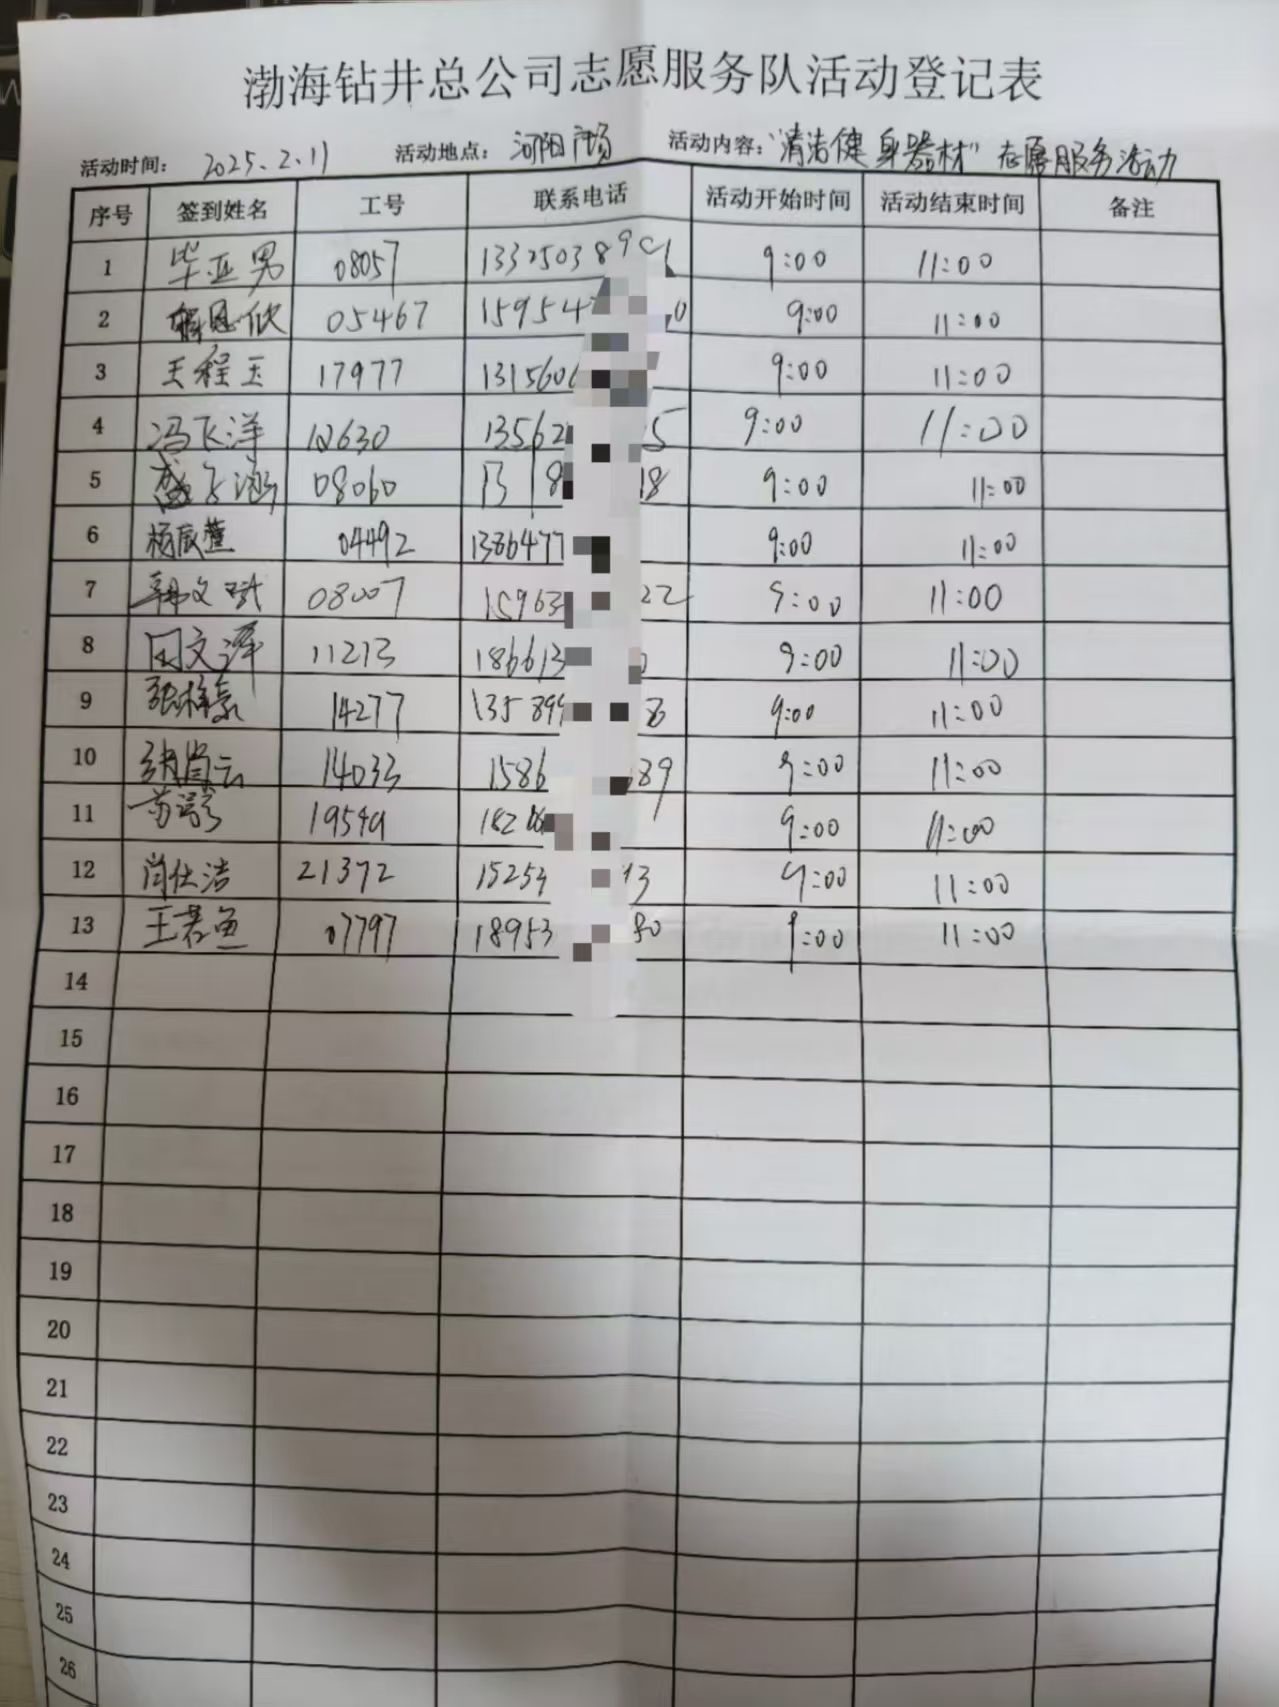 渤海钻井总公司志愿服务队活动登记表
活动时间: 2025.2.11 活动地点: 河阳广场 活动内容:"清洁健身器材"志愿服务活动
序号 签到姓名 工号 联系电话 活动开始时间 活动结束时间 备注
1 毕亚男 08057 133250389 9:00 11:00
2 05467 15954 0 9:00 11:00
3 王程玉 17977 131560 9:00 11:00
4 冯飞洋 12630 13562 5 9:00 11:00
5 盛飞涵 08060 13 18 18 9:00 11:00
6 杨辰萱 04492 1386477 9:00 11:00
7 韩文 08007 15963 22 9:00 11:00
8 田文泽 11213 186613 9:00 11:00
9 张梓豪 14277 135899 8 9:00 11:00
10 肖云 14033 1586 689 9:00 11:00
11 苏 19549 182 9:00 11:00
12 闫仕洁 21372 15254 13 9:00 11:00
13 王若鱼 07797 18953 80 9:00 11:00
14
15
16
17
18
19
20
21
22
23
24
25
26